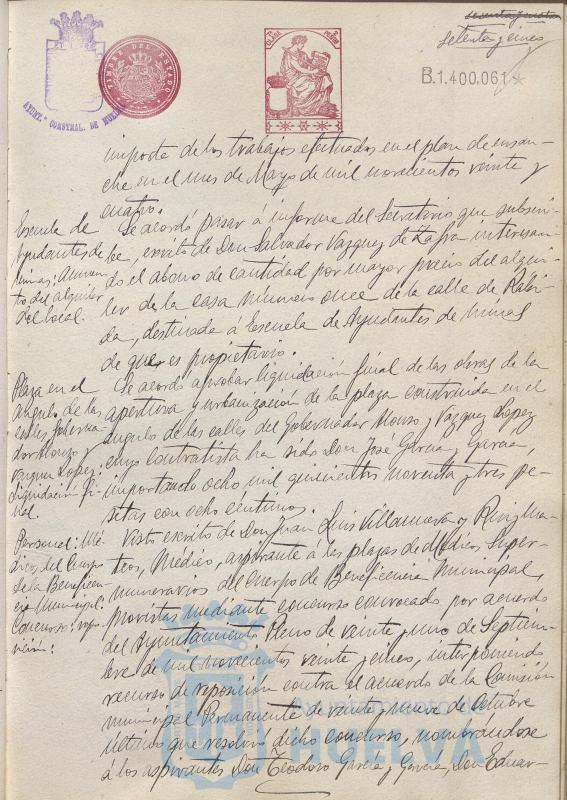 setenta y cinco
B.1.400.061
TIMBRE DEL ESTADO
AYUNT.º CONSTNAL. DE HUELVA
importe de los trabajos efectuados en el plan de ensan-
che en el mes de Mayo de mil novecientos veinte y
cuatro.
Escuela de
Ayudantes de
minas: Aumen-
to del alquiler
del local.
Se acordó pasar á informe del Secretario que subscri-
be, escrito de Don Salvador Vazquez de Zafra interesan-
do el abono de cantidad por mayor precio del alqui-
ler de la casa número once de la calle de Rábi-
da, destinada á Escuela de Ayudantes de minas
de que es propietario.
Plaza en el
ángulo de las
calles Goberna-
dor Alonso y
Vazquez Lopez:
Liquidación fi-
nal.
Se acordó aprobar liquidación final de las obras de la
apertura y urbanización de la plaza construida en el
ángulo de las calles del Gobernador Alonso y Vazquez Lopez
cuyo contratista ha sido Don José García y García,
importando ocho mil quinientos noventa y tres pe-
setas con ocho céntimos.
Personal: Mé-
dicos del Cuerpo
de la Beneficen-
cia Municipal:
Concurso:
Visto escrito de Don Juan Luis Villanueva y Ruiz Ma-
teos, Médico, aspirante á las plazas de Médicos Super-
numerarios del Cuerpo de Beneficencia Municipal,
provistas mediante concurso convocado por acuerdo
del Ayuntamiento Pleno de veinte y uno de Septiem-
bre de mil novecientos veinte y cinco, interponiendo
recurso de reposición contra el acuerdo de la Comisión
municipal Permanente de veinte y nueve de Octubre
último que resolvió dicho concurso, nombrándose
á los aspirantes Don Teodoro García y García, Don Eduar-
HUELVA